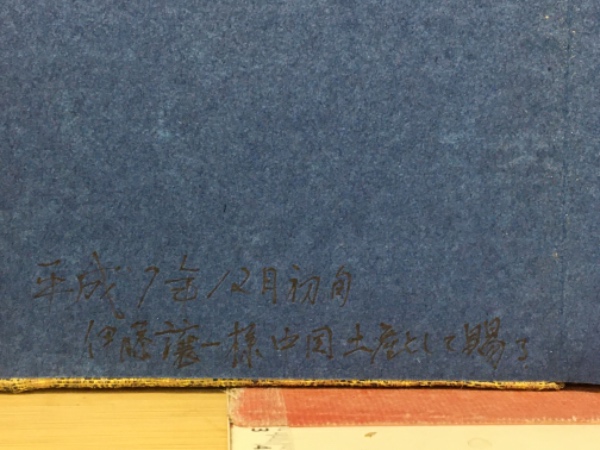 平成7年12月初旬
伊藤譲一様中国土産として賜る